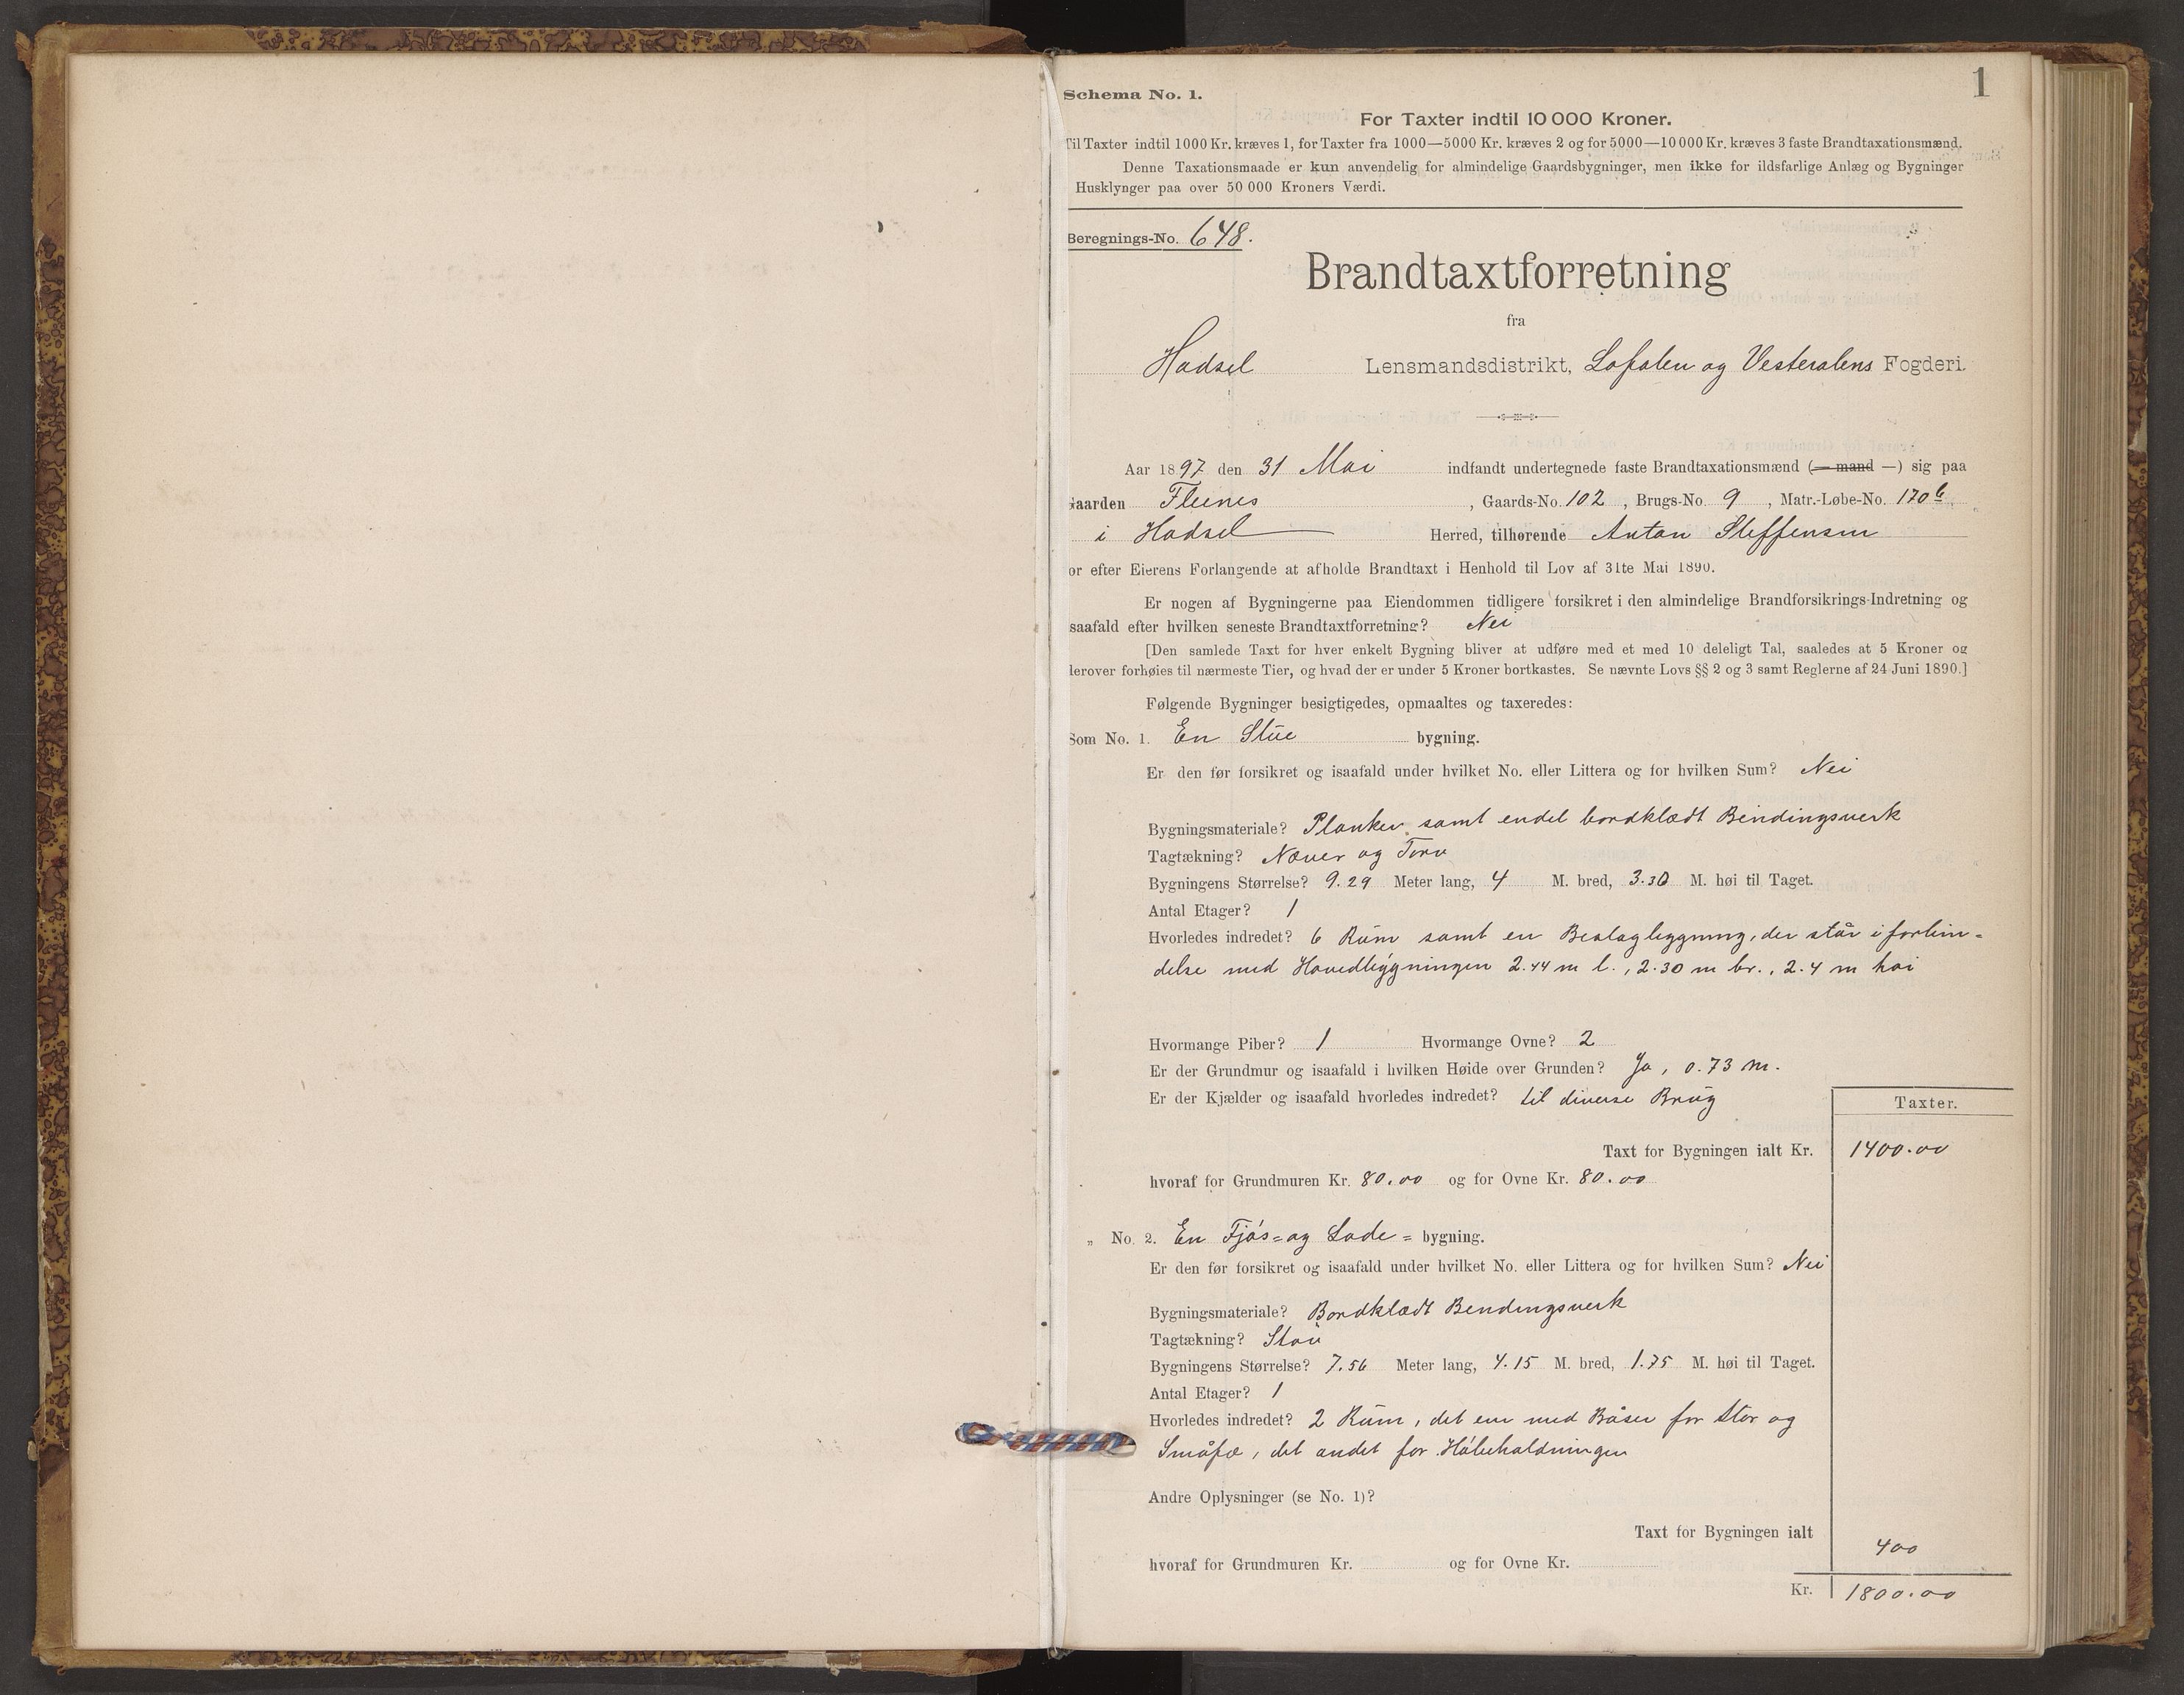 1
Schema No. 1.
For Taxter indtil 10 000 Kroner.
Til Taxter indtil 1000 Kr. kræves 1, for Taxter fra 1000—5000 Kr. kræves 2 og for 5000—10 000 Kr. kræves 3 faste Brandtaxationsmænd.
Denne Taxationsmaade er kun anvendelig for almindelige Gaardsbygninger, men ikke for ildsfarlige Anlæg og Bygninger
Husklynger paa over 50 000 Kroners Værdi.
Beregnings-No. 648.
Brandtaxtforretning
fra
Hadsel Lensmandsdistrikt, Lofoten og Vesteraalens Fogderi.
Aar 1897 den 31 Mai indfandt undertegnede faste Brandtaxationsmænd (— mand —) sig paa
Gaarden Fleines, Gaards-No. 102, Brugs-No. 9, Matr.-Løbe-No. 170 b
i Hadsel Herred, tilhørende Anton Steffensen
or efter Eierens Forlangende at afholde Brandtaxt i Henhold til Lov af 31te Mai 1890.
Er nogen af Bygningerne paa Eiendommen tidligere forsikret i den almindelige Brandforsikrings-Indretning og
saafald efter hvilken seneste Brandtaxtforretning? Nei
[Den samlede Taxt for hver enkelt Bygning bliver at udføre med et med 10 deleligt Tal, saaledes at 5 Kroner og
derover forhøies til nærmeste Tier, og hvad der er under 5 Kroner bortkastes. Se nævnte Lovs §§ 2 og 3 samt Reglerne af 24 Juni 1890.]
Følgende Bygninger besigtigedes, opmaaltes og taxeredes:
Som No. 1. En Stue bygning.
Er den før forsikret og isaafald under hvilket No. eller Littera og for hvilken Sum? Nei
Bygningsmateriale? Planker samt endel bordklædt Bindingsverk
Tagtækning? Næver og Torv
Bygningens Størrelse? 9.29 Meter lang, 4 M. bred, 3.30 M. høi til Taget.
Antal Etager? 1
Hvorledes indredet? 6 Rum samt en Beslagbygning, der står i forbin-
delse med Hovedbygningen 2.44 m l., 2.30 m br., 2.4 m høi
Hvormange Piber? 1 Hvormange Ovne? 2
Er der Grundmur og isaafald i hvilken Høide over Grunden? Ja, 0.73 m.
Er der Kjælder og isaafald hvorledes indredet? til diverse Brug
Taxter.
Taxt for Bygningen ialt Kr. 1400.00
hvoraf for Grundmuren Kr. 80.00 og for Ovne Kr. 80.00
„ No. 2. En Fjøs- og Lade- bygning.
Er den før forsikret og isaafald under hvilket No. eller Littera og for hvilken Sum? Nei
Bygningsmateriale? Bordklædt Bendingsverk
Tagtækning?
Bygningens Størrelse? 7.56 Meter lang, 4.15 M. bred, 1.75 M. høi til Taget.
Antal Etager? 1
Hvorledes indredet? 2 Rum, det ene med Båser for Stor og
Småfæ, det andet for Høbeholdningen
Andre Oplysninger (se No. 1)?
Taxt for Bygningen ialt 400
hvoraf for Grundmuren Kr. og for Ovne Kr.
Kr. 1800.00